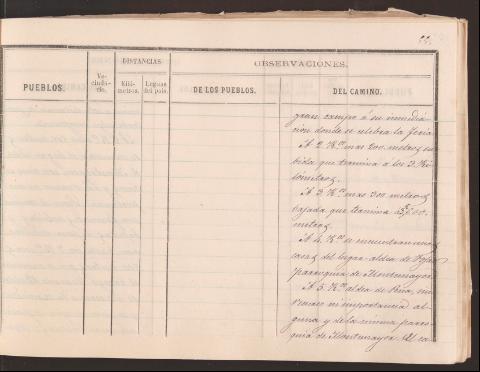 PUEBLOS.
Ve-
cinda-
rio.
DISTANCIAS
Kiló-
metros.
Leguas
del país.
OBSERVACIONES.
DE LOS PUEBLOS.
DEL CAMINO.
gran campo á su inmedia-
cion donde se celebra la feria
A 2 K.os mas 200 metros su-
bida que termina á los 3 Ki-
lómetros.
A 3 K.os mas 300 metros
bajada que termina
metros.
A 4 K.os se encuentran
casas del lugar-aldea de
parroquia de Montemayor.
A 5 K.os aldea de
ni importancia al-
guna y de la misma parro-
quia de Montemayor. Al ca-